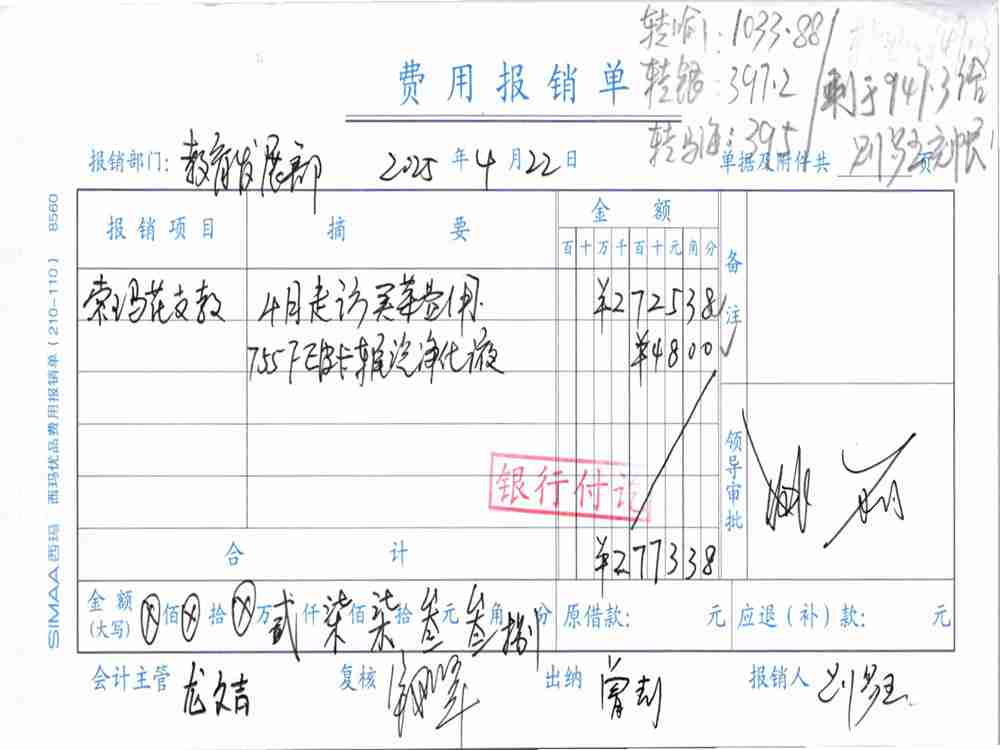 转喻:1033.88
费用报销单
转银:397.2
剩于947.3给
转马海:395
报销部门:教育发展部 2025年4月22日 单据及附件共 页
报销项目 摘要 金额
百十万千百十元角分
备注
索玛花支教 4月走访关华费用 ¥272538
755F皮卡车尾汽净化液 ¥4800
领导审批
银行付讫
合计 ¥277338
金额(大写) ⊗佰⊗拾⊗万贰仟柒佰柒拾叁元叁角捌分 原借款: 元 应退(补)款: 元
会计主管 龙文吉 复核 出纳 曾莉 报销人
SIMAA西玛 西玛优品费用报销单(210-110) 8560